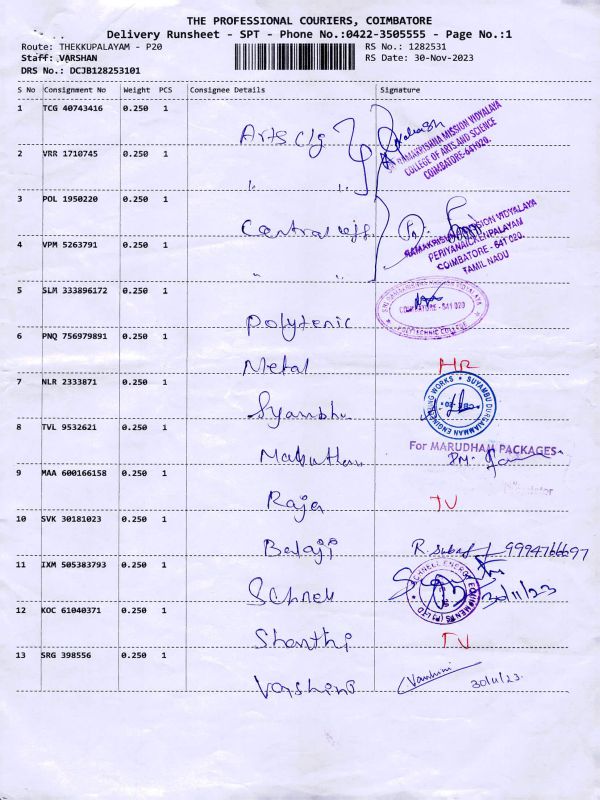 THE PROFESSIONAL COURIERS, COIMBATORE
Delivery Runsheet - SPT - Phone No.:0422-3505555 - Page No.:1
Route: THEKKUPALAYAM - P20
RS No.: 1282531
Staff: VARSHAN
RS Date: 30-Nov-2023
DRS No.: DCJB128253101
S No Consignment No Weight PCS Consignee Details Signature
1 TCG 40743416 0.250 1
Arts clg
SRI RAMAKRISHNA MISSION VIDYALAYA
COLLEGE OF ARTS AND SCIENCE
COIMBATORE-641020.
2 VRR 1710745 0.250 1
" "
3 POL 1950220 0.250 1
Central off.
RAMAKRISHNA MISSION VIDYALAYA
PERIYANAICKENPALAYAM
COIMBATORE - 641 020.
TAMIL NADU
4 VPM 5263791 0.250 1
" "
5 SLM 333896172 0.250 1
Polytenic
SRI RAMAKRISHNA MISSION VIDYALAYA
COIMBATORE - 641 020
POLYTECHNIC COLLEGE
6 PNQ 756979891 0.250 1
Metal HR
7 NLR 2333871 0.250 1
Syambhu
SUYAMBU DURGAIAMMAN ENGINEERING WORKS
8 TVL 9532621 0.250 1
For MARUDHAM PACKAGES
9 MAA 600166158 0.250 1
Raja TV
10 SVK 30181023 0.250 1
Balaji R. 9994766697
11 IXM 505383793 0.250 1
Schnell
SCHNELL ENERGY EQUIPMENTS (P) LTD
30/11/23
12 KOC 61040371 0.250 1
Shanthi TV
13 SRG 398556 0.250 1
Varshini Varshini 30/11/23.